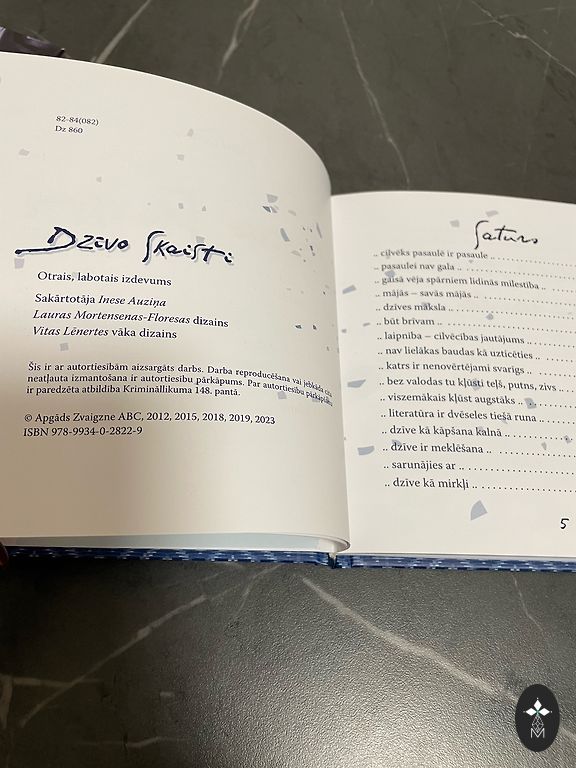 82-84(082)
Dz 860
Dzīvo Skaisti
Otrais, labotais izdevums
Sakārtotāja Inese Auziņa
Lauras Mortensenas-Floresas dizains
Vitas Lēnertes vāka dizains
Šis ir ar autortiesībām aizsargāts darbs. Darba reproducēšana vai jebkāda cita
neatļauta izmantošana ir autortiesību pārkāpums. Par autortiesību pārkāpšanu
ir paredzēta atbildība Krimināllikuma 148. pantā.
© Apgāds Zvaigzne ABC, 2012, 2015, 2018, 2019, 2023
ISBN 978-9934-0-2822-9
Saturs
.. cilvēks pasaulē ir pasaule ..
.. pasaulei nav gala ..
.. gaisā vēja spārniem lidinās mīlestība ..
.. mājās – savās mājās ..
.. dzīves māksla ..
.. būt brīvam ..
.. laipnība – cilvēcības jautājums ..
.. nav lielākas baudas kā uzticēties ..
.. katrs ir nenovērtējami svarīgs ..
.. bez valodas tu kļūsti teļš, putns, zivs ..
.. viszemākais kļūst augstāks ..
.. literatūra ir dvēseles tiešā runa ..
.. dzīve kā kāpšana kalnā ..
.. dzīve ir meklēšana ..
.. sarunājies ar ..
.. dzīve kā mirkļi ..
5
M